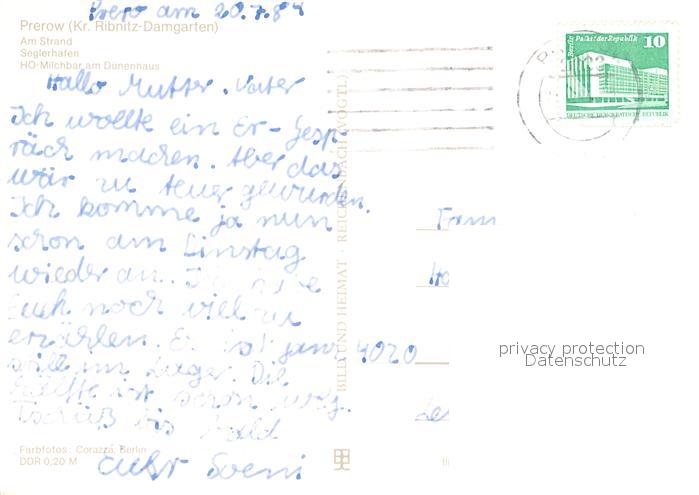 am 20.7.84
Prerow (Kr. Ribnitz-Damgarten)
Am Strand
Seglerhafen
HO-Milchbar am Dünenhaus
Hallo Mutter. Vater
Ich wollte ein Er- Gesp
räch machen. Aber das
wär zu teuer gewurden.
Ich komme ja nun
schon am
wieder an. Ich
Euch noch viel zu
erzählen. Er ist ganz
still im Lager. Die
Hälfte ist schon weg.
Tschüß bis bald
Euer
Farbfotos: Corazza, Berlin
DDR 0,20 M
BILD UND HEIMAT · REICHENBACH (VOGTL)
Berlin Palast der Republik
10
DEUTSCHE DEMOKRATISCHE REPUBLIK
Fam
4020
privacy protection
Datenschutz